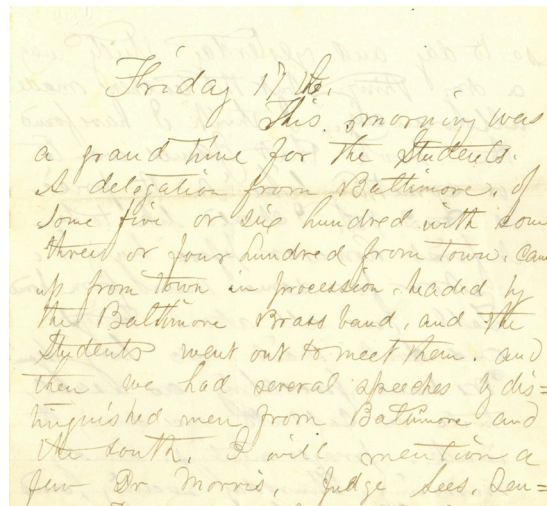 Friday 17th.
This morning was
a grand time for the Students.
A delegation from Baltimore, of
some five or six hundred with som
three or four hundred from town, cam
up from town in procession, headed by
the Baltimore Brass band, and the
Students went out to meet them. and
then we had several speeches by dis=
tinguished men from Baltimore and
the south, I will mention a
few Dr. Morris, Judge Lees, Sen=